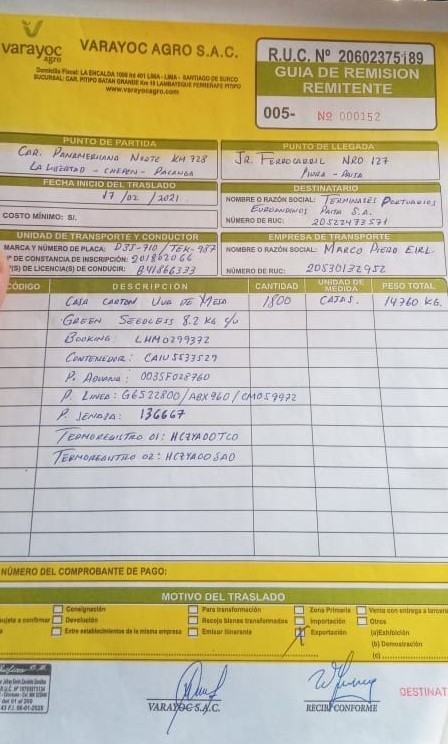 varayoc
agro
VARAYOC AGRO S.A.C.
Domicilio Fiscal: LA ENCALADA 1090 Int 401 LIMA - LIMA - SANTIAGO DE SURCO
SUCURSAL: CAR. PITIPO BATAN GRANDE Km 10 LAMBAYEQUE FERREÑAFE PITIPO
www.varayocagro.com
R.U.C. Nº 20602375189
GUIA DE REMISION
REMITENTE
005- Nº 000152
PUNTO DE PARTIDA
CAR. PANAMERICANA NORTE KM 728
LA LIBERTAD - CHEPEN - PACANGA
PUNTO DE LLEGADA
JR. FERROCARRIL NRO 127
PIURA - PAITA
FECHA INICIO DEL TRASLADO
17 / 02 / 2021
COSTO MÍNIMO: S/.
DESTINATARIO
NOMBRE O RAZÓN SOCIAL: TERMINALES PORTUARIOS
EUROANDINOS PAITA S.A.
NÚMERO DE RUC: 20522473571
UNIDAD DE TRANSPORTE Y CONDUCTOR
MARCA Y NÚMERO PLACA: D3J-910 / TEK-987
Nº DE CONSTANCIA DE INSCRIPCIÓN: 201862066
Nº(S) DE LICENCIA(S) DE CONDUCIR: B41866333
EMPRESA DE TRANSPORTE
NOMBRE O RAZÓN SOCIAL: MARCO PIERO EIRL.
NÚMERO DE RUC: 20530132952
CÓDIGO DESCRIPCIÓN CANTIDAD UNIDAD DE MEDIDA PESO TOTAL
CAJA CARTON UVA DE MESA 1800 CAJAS. 14760 KG.
GREEN SEEDLESS 8.2 KG c/u
BOOKING: LHM0299372
CONTENEDOR: CAIU5533529
P. ADUANA: 0035F028760
P. LINEA: G6522800 / ABX960 / CM059972
P. SENASA: 136667
TERMOREGISTRO 01: HCZYA00TC0
TERMOREGISTRO 02: HCZYA00SA0
NÚMERO DEL COMPROBANTE DE PAGO:
MOTIVO DEL TRASLADO
Consignación Para transformación Zona Primaria Venta con entrega a terceros
sujeta a confirmar Devolución Recojo bienes transformados Importación Otros
Entre establecimientos de la misma empresa Emisor Itinerante Exportación (a)Exhibición
(b) Demostración
(c)
VARAYOC S.A.C.
RECIBI CONFORME
DESTINAT